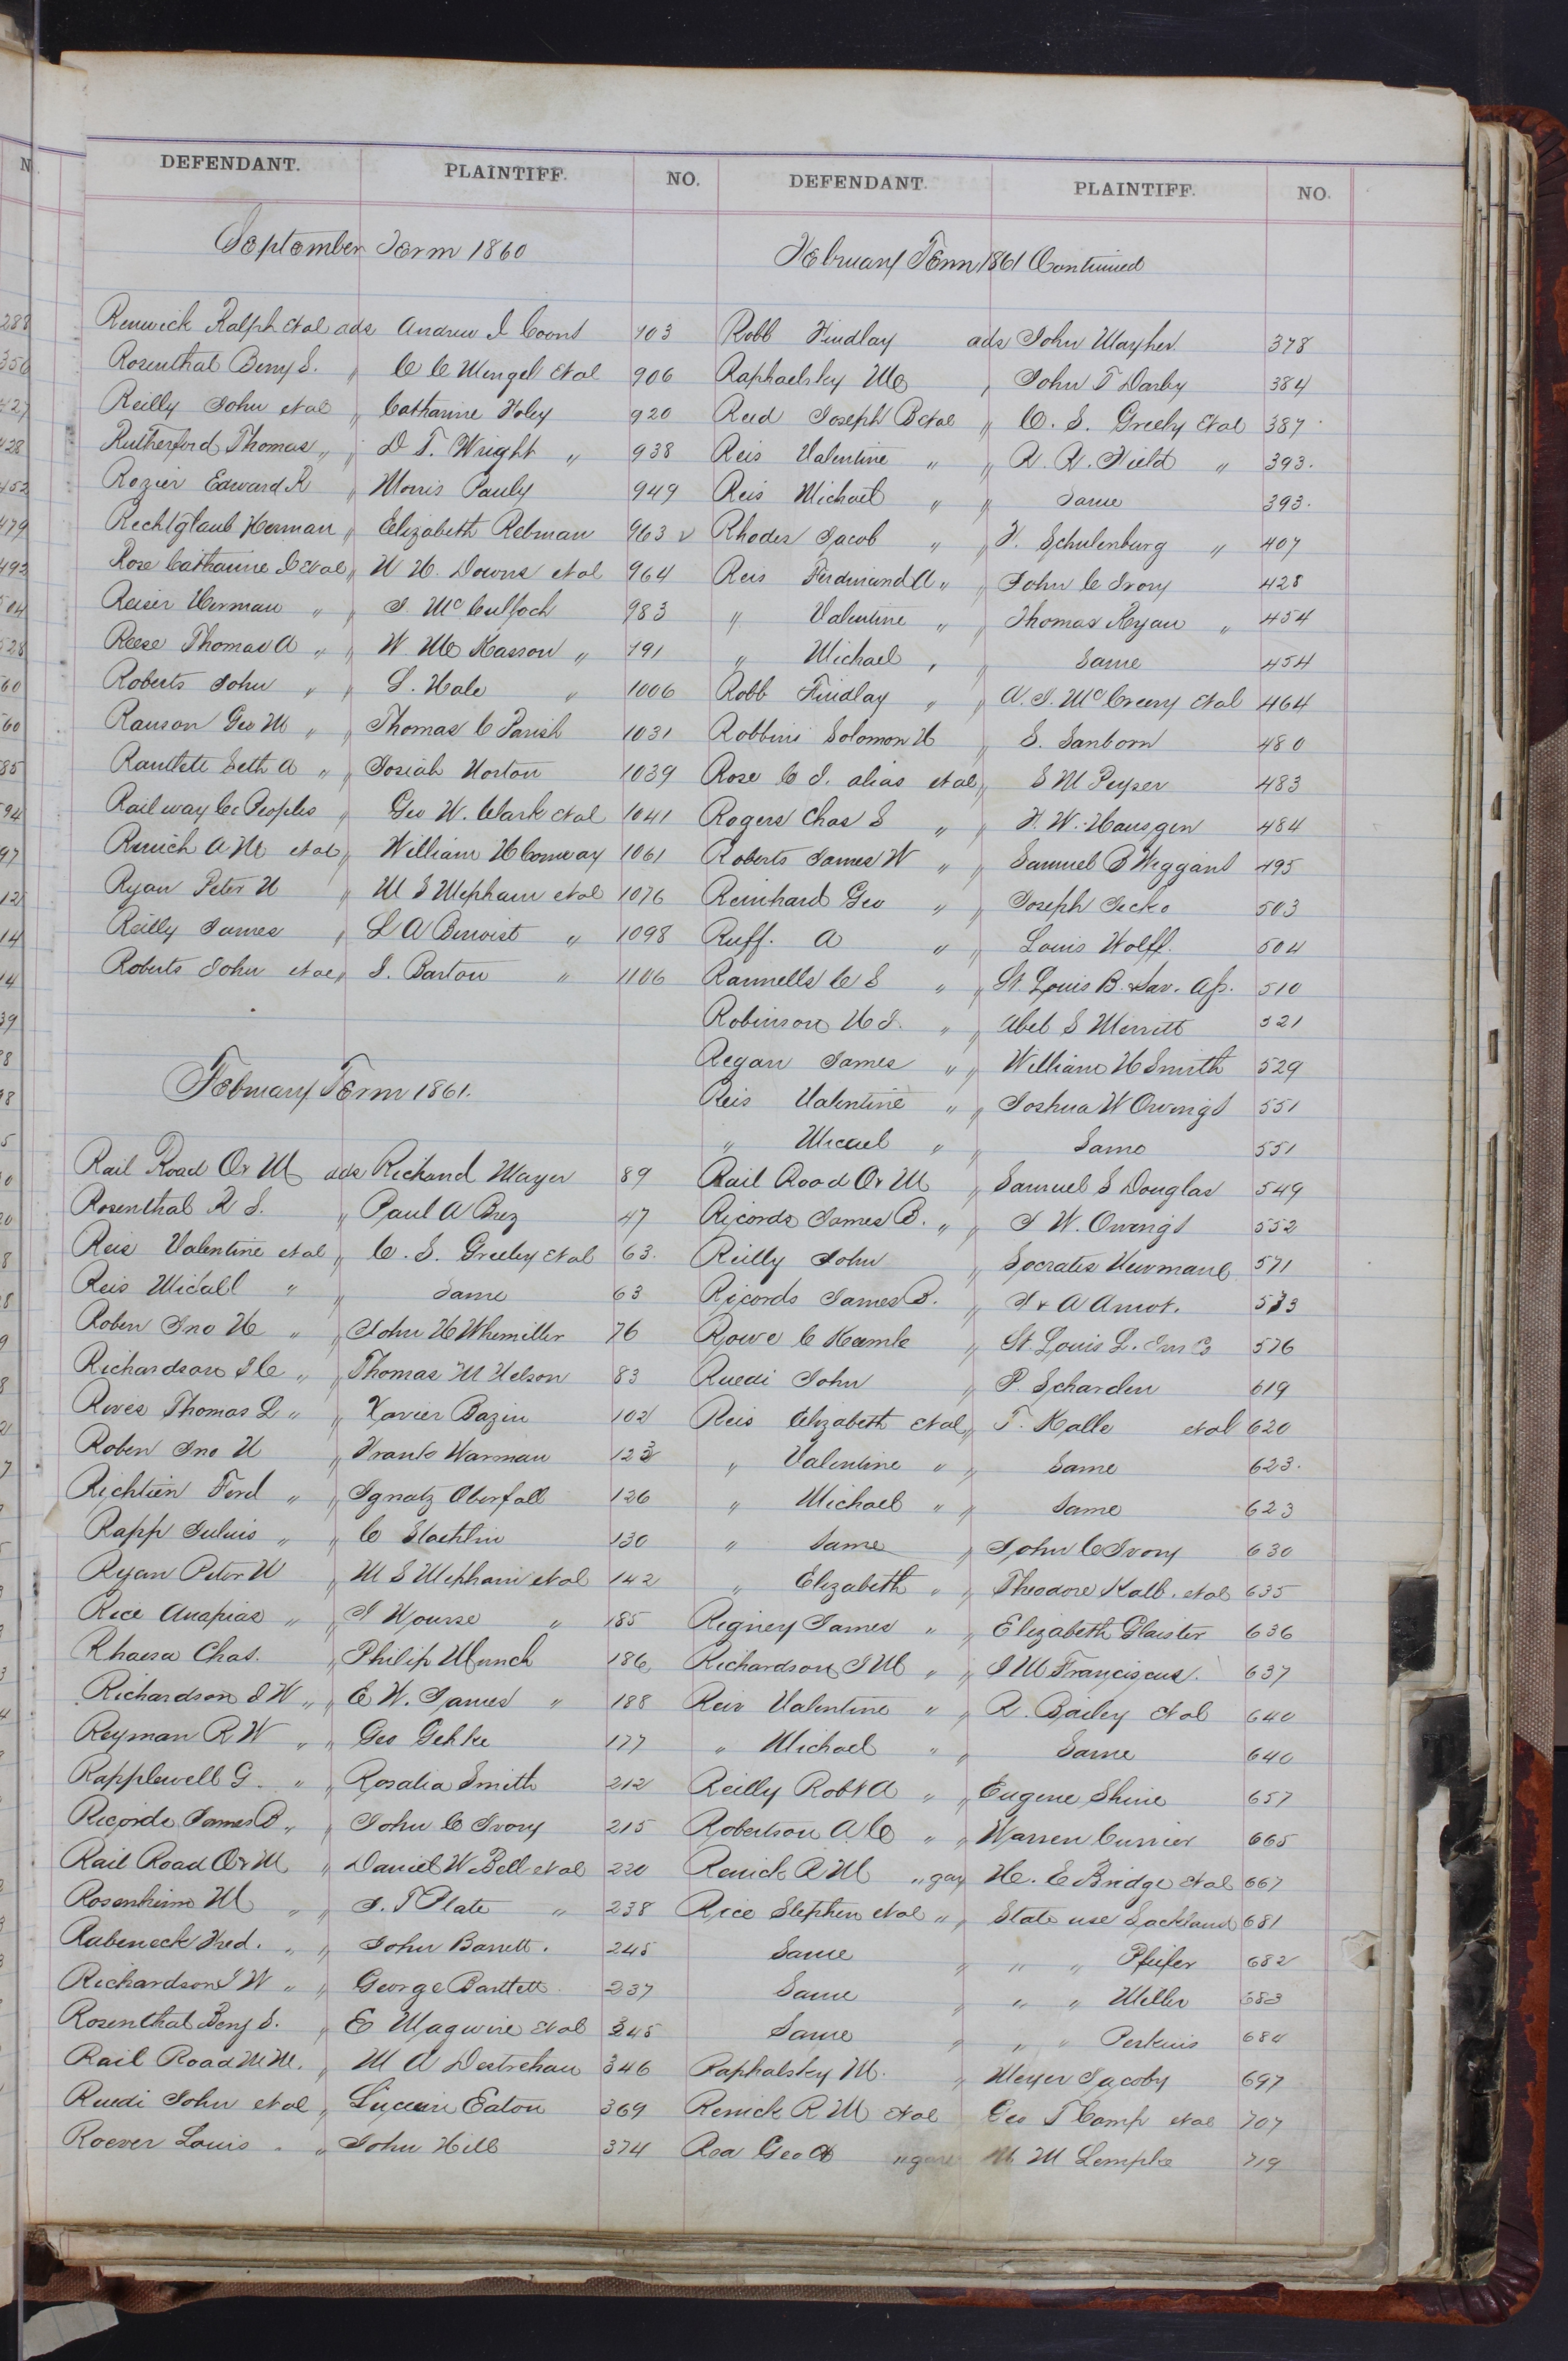 DEFENDANT. PLAINTIFF. NO.
September Term 1860
Renwick Ralph et al ads Andrew J Coons 903
Rosenthal Benj S. " C C Mengel et al 906
Reilly John et al " Catharine Foley 920
Rutherford Thomas " " D T. Wright " 938
Rozier Edward R " Morris Pauly 949
Rechtglaub Herman " Elizabeth Rebman 963
Rose Catharine C et al " W H. Downs et al 964
Reiser Herman " " J. McCulloch 983
Reese Thomas A " " W. M Kasson " 991
Roberts John " " L. Hale " 1006
Ranson Geo M " " Thomas C Parish 1031
Ranlett Seth A " " Josiah Horton 1039
Railway Co Peoples " Geo W. Clark et al 1041
Renich A M et al " William H Conway 1061
Ryan Peter H " M S Mepham et al 1076
Reilly James " L A Benoist " 1098
Roberts John et al " J. Barton " 1106
February Term 1861.
Rail Road O & M ads Richard Mayer 89
Rosenthal R S. " Paul A Brez 47
Reis Valentine et al " C. S. Greeley et al 63.
Reis Micall " " Same 63
Roben Jno H " John H Whemiller 76
Richardson J C " " Thomas M Nelson 83
Reves Thomas L " " Xavier Bazin 102
Roben Jno H " Frank Warman 123
Richtien Ferd " " Ignatz Oberfall 126
Rapp Julius " " C Staehlin 130
Ryan Peter H " M S Mepham et al 142
Rice Anapias " " J Wourse " 185
Rhaesa Chas. " Philip Munch 186
Richardson J W " " E W. James " 188
Reyman R W " " Geo Gehke 177
Rapplewell G. " " Rosalia Smith 212
Ricords James B " " John C Ivory 215
Rail Road O & M " Daniel W Bell et al 220
Rosenheim M " " J. T Plate " 238
Rabeneck Fred. " " John Barrett. 245
Richardson J W " " George Bartlett 237
Rosenthal Benj S. " E Maguire et al 345
Rail Road N M. " M A Destrehan 346
Ruedi John et al " Lucien Eaton 369
Roever Louis " " John Hill 374
DEFENDANT. PLAINTIFF. NO.
February Term 1861 Continued
Robb Findlay ads John Mayher 378
Raphaelsky M " John T Darby 384
Reed Joseph B et al " C. S. Greely et al 387
Reis Valentine " " R. R. Field " 393.
Reis Michael " " Same 393.
Rhodes Jacob " " F. Schulenburg " 407
Reis Ferdinand A " " John C Ivory 428
" Valentine " " Thomas Ryan " 454
" Michael " " Same 454
Robb Findlay " " A. J. McCreery et al 464
Robbins Solomon H " S. Sanborn 480
Rose C J. alias et al " S M Peyser 483
Rogers Chas S " " F. W. Hausgen 484
Roberts James W " " Samuel B Wiggans 495
Reinhard Geo " " Joseph Jecko 503
Ruff. A " " Louis Wolff. 504
Rannells C S " " St. Louis B. & Sav. Ass. 510
Robinson H J. " " Abel S Merritt 521
Regan James " " William H Smith 529
Reis Valentine " " Joshua W Owings 551
" Micael " " Same 551
Rail Road O & M " Samuel S Douglas 549
Ricords James B. " " J W. Owings 552
Reilly John " Socrates Newman 571
Ricords James B. " J & A Amot. 573
Rowe C Kemle " St. Louis L. Ins Co 576
Ruedi John " P. Scharden 619
Reis Elizabeth et al " T. Kalle et al 620
" Valentine " " Same 623.
" Michael " " Same 623
" Same " John C Ivory 630
" Elizabeth " " Theodore Kalb. et al 635
Rigney James " " Elizabeth Glaister 636
Richardson J M " " J M Franciscus. 637
Reis Valentine " " R. Bailey et al 640
" Michael " " Same 640
Reilly Robt A " " Eugene Shine 657
Robertson A C " " Warren Currier 665
Renick R M " gar H. E Bridge et al 667
Rice Stephen et al " " State use Lackland 681
Same " " " Pfeifer 682
Same " " " Miller 683
Same " " " Perkins 684
Raphalsky M. " Meyer Jacoby 697
Renick R M et al Geo T Camp et al 707
Rea Geo A " gar M M Lempke 719
N.